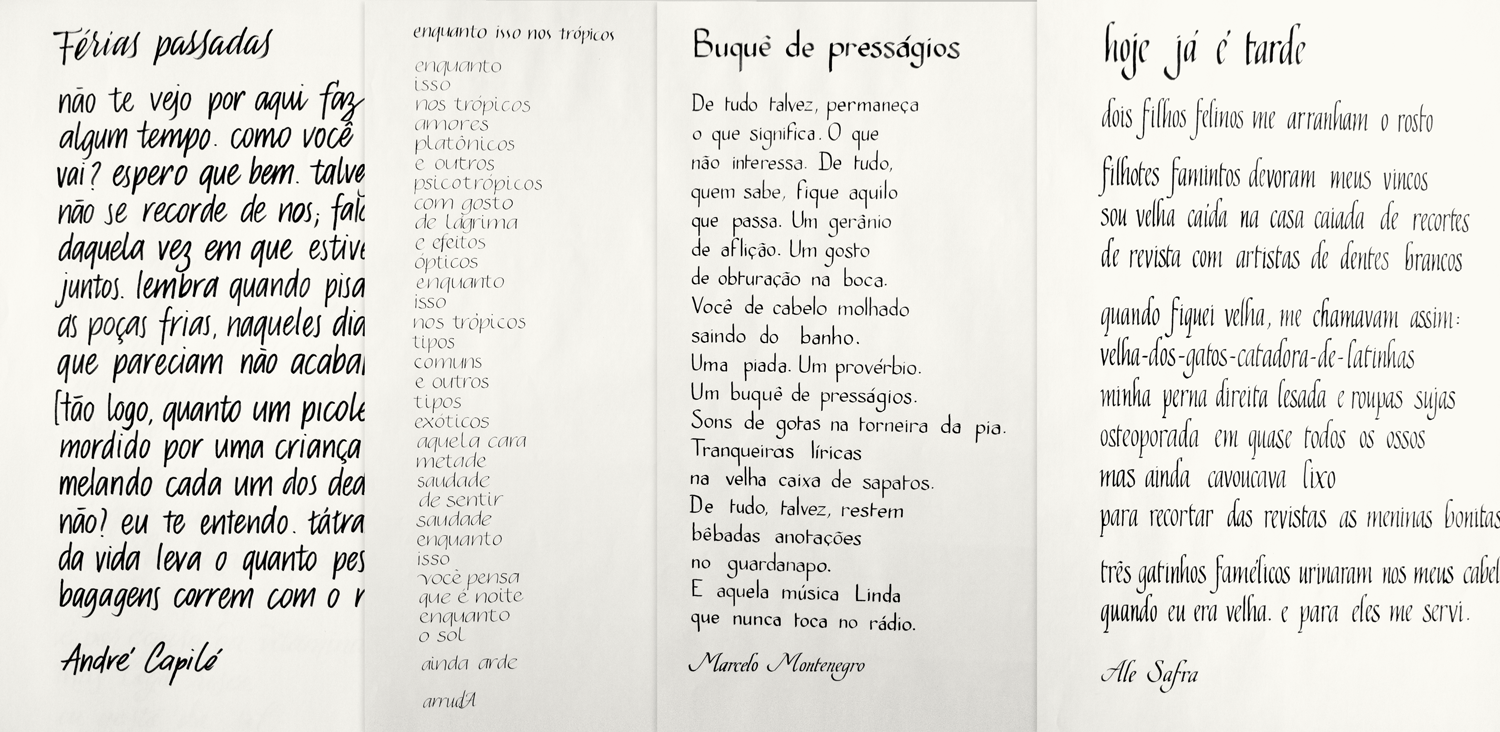 Férias passadas
não te vejo por aqui faz
algum tempo. como você
vai? espero que bem. talve
não se recorde de nos; fala
daquela vez em que estive
juntos. lembra quando pisa
as poças frias, naqueles dia
que pareciam não acabar
[tão logo, quanto um picole
mordido por uma criança
melando cada um dos ded
não? eu te entendo. tátra
da vida leva o quanto pes
bagagens correm com o r
André Capilé
enquanto isso nos trópicos
enquanto
isso
nos trópicos
amores
platônicos
e outros
psicotrópicos
com gosto
de lágrima
e efeitos
ópticos
enquanto
isso
nos trópicos
tipos
comuns
e outros
tipos
exóticos
aquela cara
metade
saudade
de sentir
saudade
enquanto
isso
você pensa
que é noite
enquanto
o sol
ainda arde
arrudA
Buquê de presságios
De tudo talvez, permaneça
o que significa. O que
não interessa. De tudo,
quem sabe, fique aquilo
que passa. Um gerânio
de aflição. Um gosto
de obturação na boca.
Você de cabelo molhado
saindo do banho.
Uma piada. Um provérbio.
Um buquê de presságios.
Sons de gotas na torneira da pia.
Tranqueiras líricas
na velha caixa de sapatos.
De tudo, talvez, restem
bêbadas anotações
no guardanapo.
E aquela música Linda
que nunca toca no rádio.
Marcelo Montenegro
hoje já é tarde
dois filhos felinos me arranham o rosto
filhotes famintos devoram meus vincos
sou velha caída na casa caiada de recortes
de revista com artistas de dentes brancos
quando fiquei velha, me chamavam assim:
velha-dos-gatos-catadora-de-latinhas
minha perna direita lesada e roupas sujas
osteoporada em quase todos os ossos
mas ainda cavoucava lixo
para recortar das revistas as meninas bonitas
três gatinhos famélicos urinaram nos meus cabel
quando eu era velha. e para eles me servi.
Ale Safra